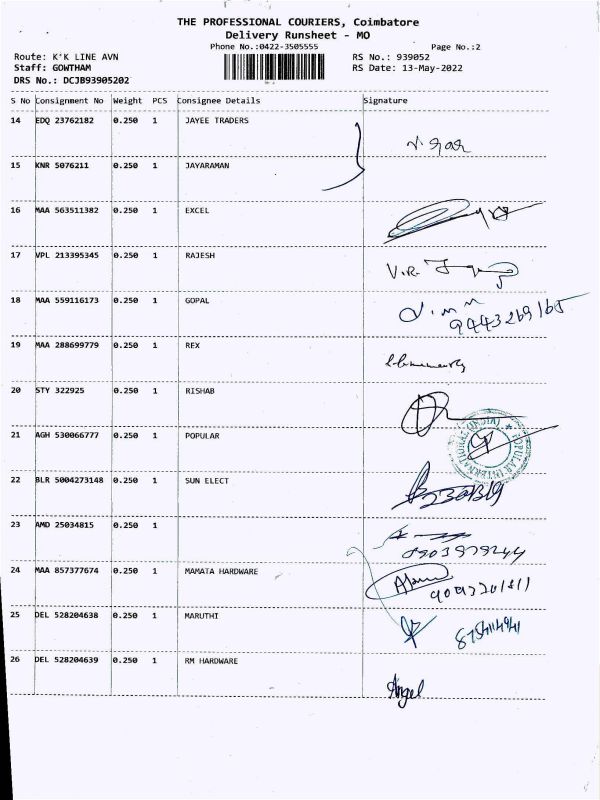 THE PROFESSIONAL COURIERS, Coimbatore
Delivery Runsheet - MO
Phone No.:0422-3505555 Page No.:2
Route: K'K LINE AVN RS No.: 939052
Staff: GOWTHAM RS Date: 13-May-2022
DRS No.: DCJB93905202
S No Consignment No Weight PCS Consignee Details Signature
14 EDQ 23762182 0.250 1 JAYEE TRADERS
15 KNR 5076211 0.250 1 JAYARAMAN
16 MAA 563511382 0.250 1 EXCEL
17 VPL 213395345 0.250 1 RAJESH V.R.
18 MAA 559116173 0.250 1 GOPAL
9443269165
19 MAA 288699779 0.250 1 REX
20 STY 322925 0.250 1 RISHAB
21 AGH 530066777 0.250 1 POPULAR POPULAR INTERNATIONAL (INDIA)
22 BLR 5004273148 0.250 1 SUN ELECT
23 AMD 25034815 0.250 1
8903979244
24 MAA 857377674 0.250 1 MAMATA HARDWARE
25 DEL 528204638 0.250 1 MARUTHI
26 DEL 528204639 0.250 1 RM HARDWARE
Angel